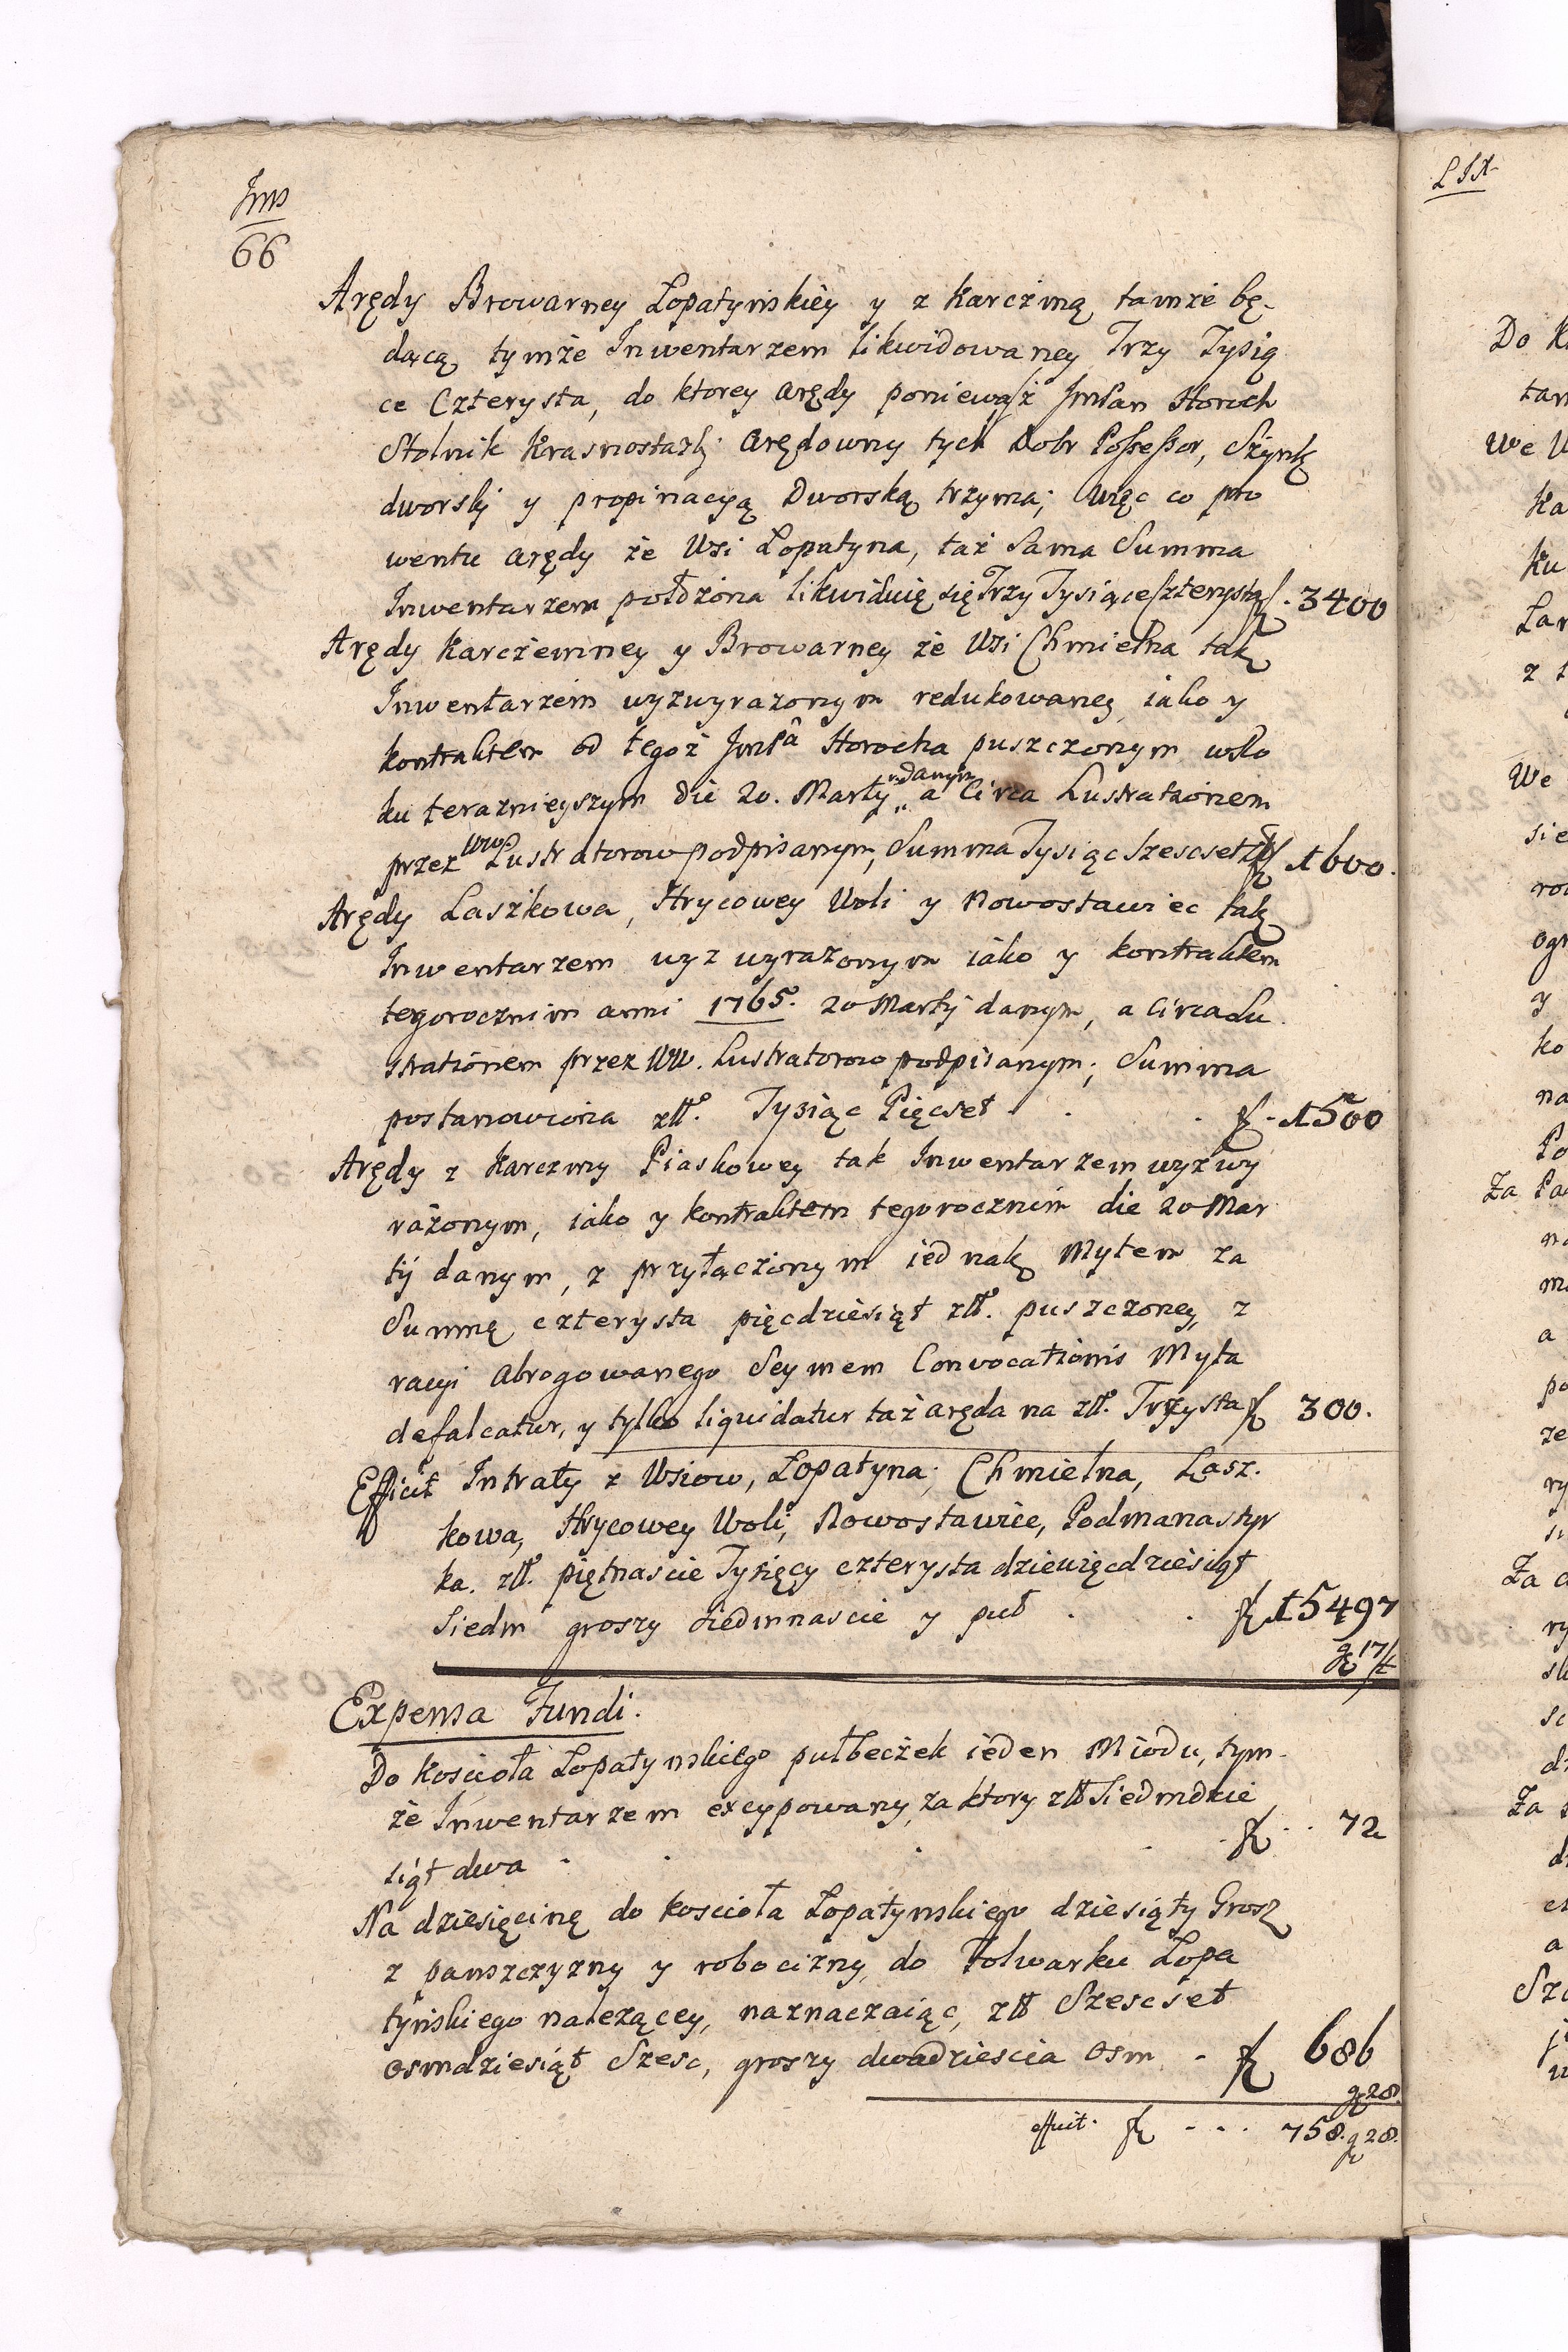 Jms
66
Arędy Browarney Łopatyńskiey y z karczmą tamże bę-
dącą tymże Inwentarzem likwidowaney Trzy Tysią
ce Czterysta, do ktorey arędy ponieważ JmPan Horoch
Stolnik Krasnostazki arędowny tych Dobr Possessor, Szynk
dworski y propinacyą Dworską trzyma; więc co pro
wentu arędy że Wsi Łopatyna, taż Sama Summa
Inwentarzem położona likwiduię się Trzy Tysiące Czterysta f. 3400
Arędy Karczemney y Browarney że Wsi Chmielna tak
Inwentarzem wyzwyrazonym redukowaney, iako y
kontraktem od tegoż JmPa Horocha puszczonym, wRo
ku terazniejszym die 20. Martij wydanym a Circa Lustrationem
przez WW Lustratorow podpisanym, Summa Tysiąc Szescset zł f 1600.
Arędy Laszkowa, Hrycowey Woli y Nowostawiec tak
Inwentarzem wyz wyrazonym iako y kontraktem
tegorocznim anni 1765. 20 Martij danym, a Circa Lu
strationem przez WW. Lustratorow podpisanym; Summa
postanowiona złł. Tysiąc Pięcset . . . f. 1500
Arędy z Karczmy Piaskowey tak Inwentarzem wyzwy
rażonym, iako y kontraktem tegorocznim die 20 Mar
tij danym, z przyłączonym iednak Mytem za
Summę czterysta pięcdziesiąt złł. puszczoney, z
racyi abrogowanego Seymem Convocationis Myta
defalcatur, y tylko liquidatur taż aręda na złł. Trzysta f 300.
Efficit Intraty z Wsiow, Łopatyna, Chmielna, Łasz-
kowa, Hrycowey Woli, Nowostawiec, Podmanastyr
ka. złł. piętnascie Tysięcy czterysta dziewięcdziesiąt
Siedm groszy siedmnascie y puł . . f 15497
g 17/½
Expensa Fundi.
Do Koscioła Łopatynskiego pułbeczek ieden Miodu, tym-
że Inwentarzem excypowany, za ktory złł Siedmdzie
siąt dwa . . . . f . . 72
Na dziesięcinę do koscioła Łopatynskiego dziesiąty Grosz
z panszczyzny y robocizny, do Folwarku Łopa
tyńskiego nalezącey, naznaczaiąc, złł Szescset
osmdziesiąt Szesc, groszy dwadziescia osm - f 686
g 28.
effcit. f - - - 758. g 28.
LIX
Do K
tam
We W
Ka
ku
Lar
z t
We
sie
ro
ogr
y
ko
na
Po
Za Pa
na
ma
a
po
ze
ry
Za
ry
sk
sc
Za
a
Sz